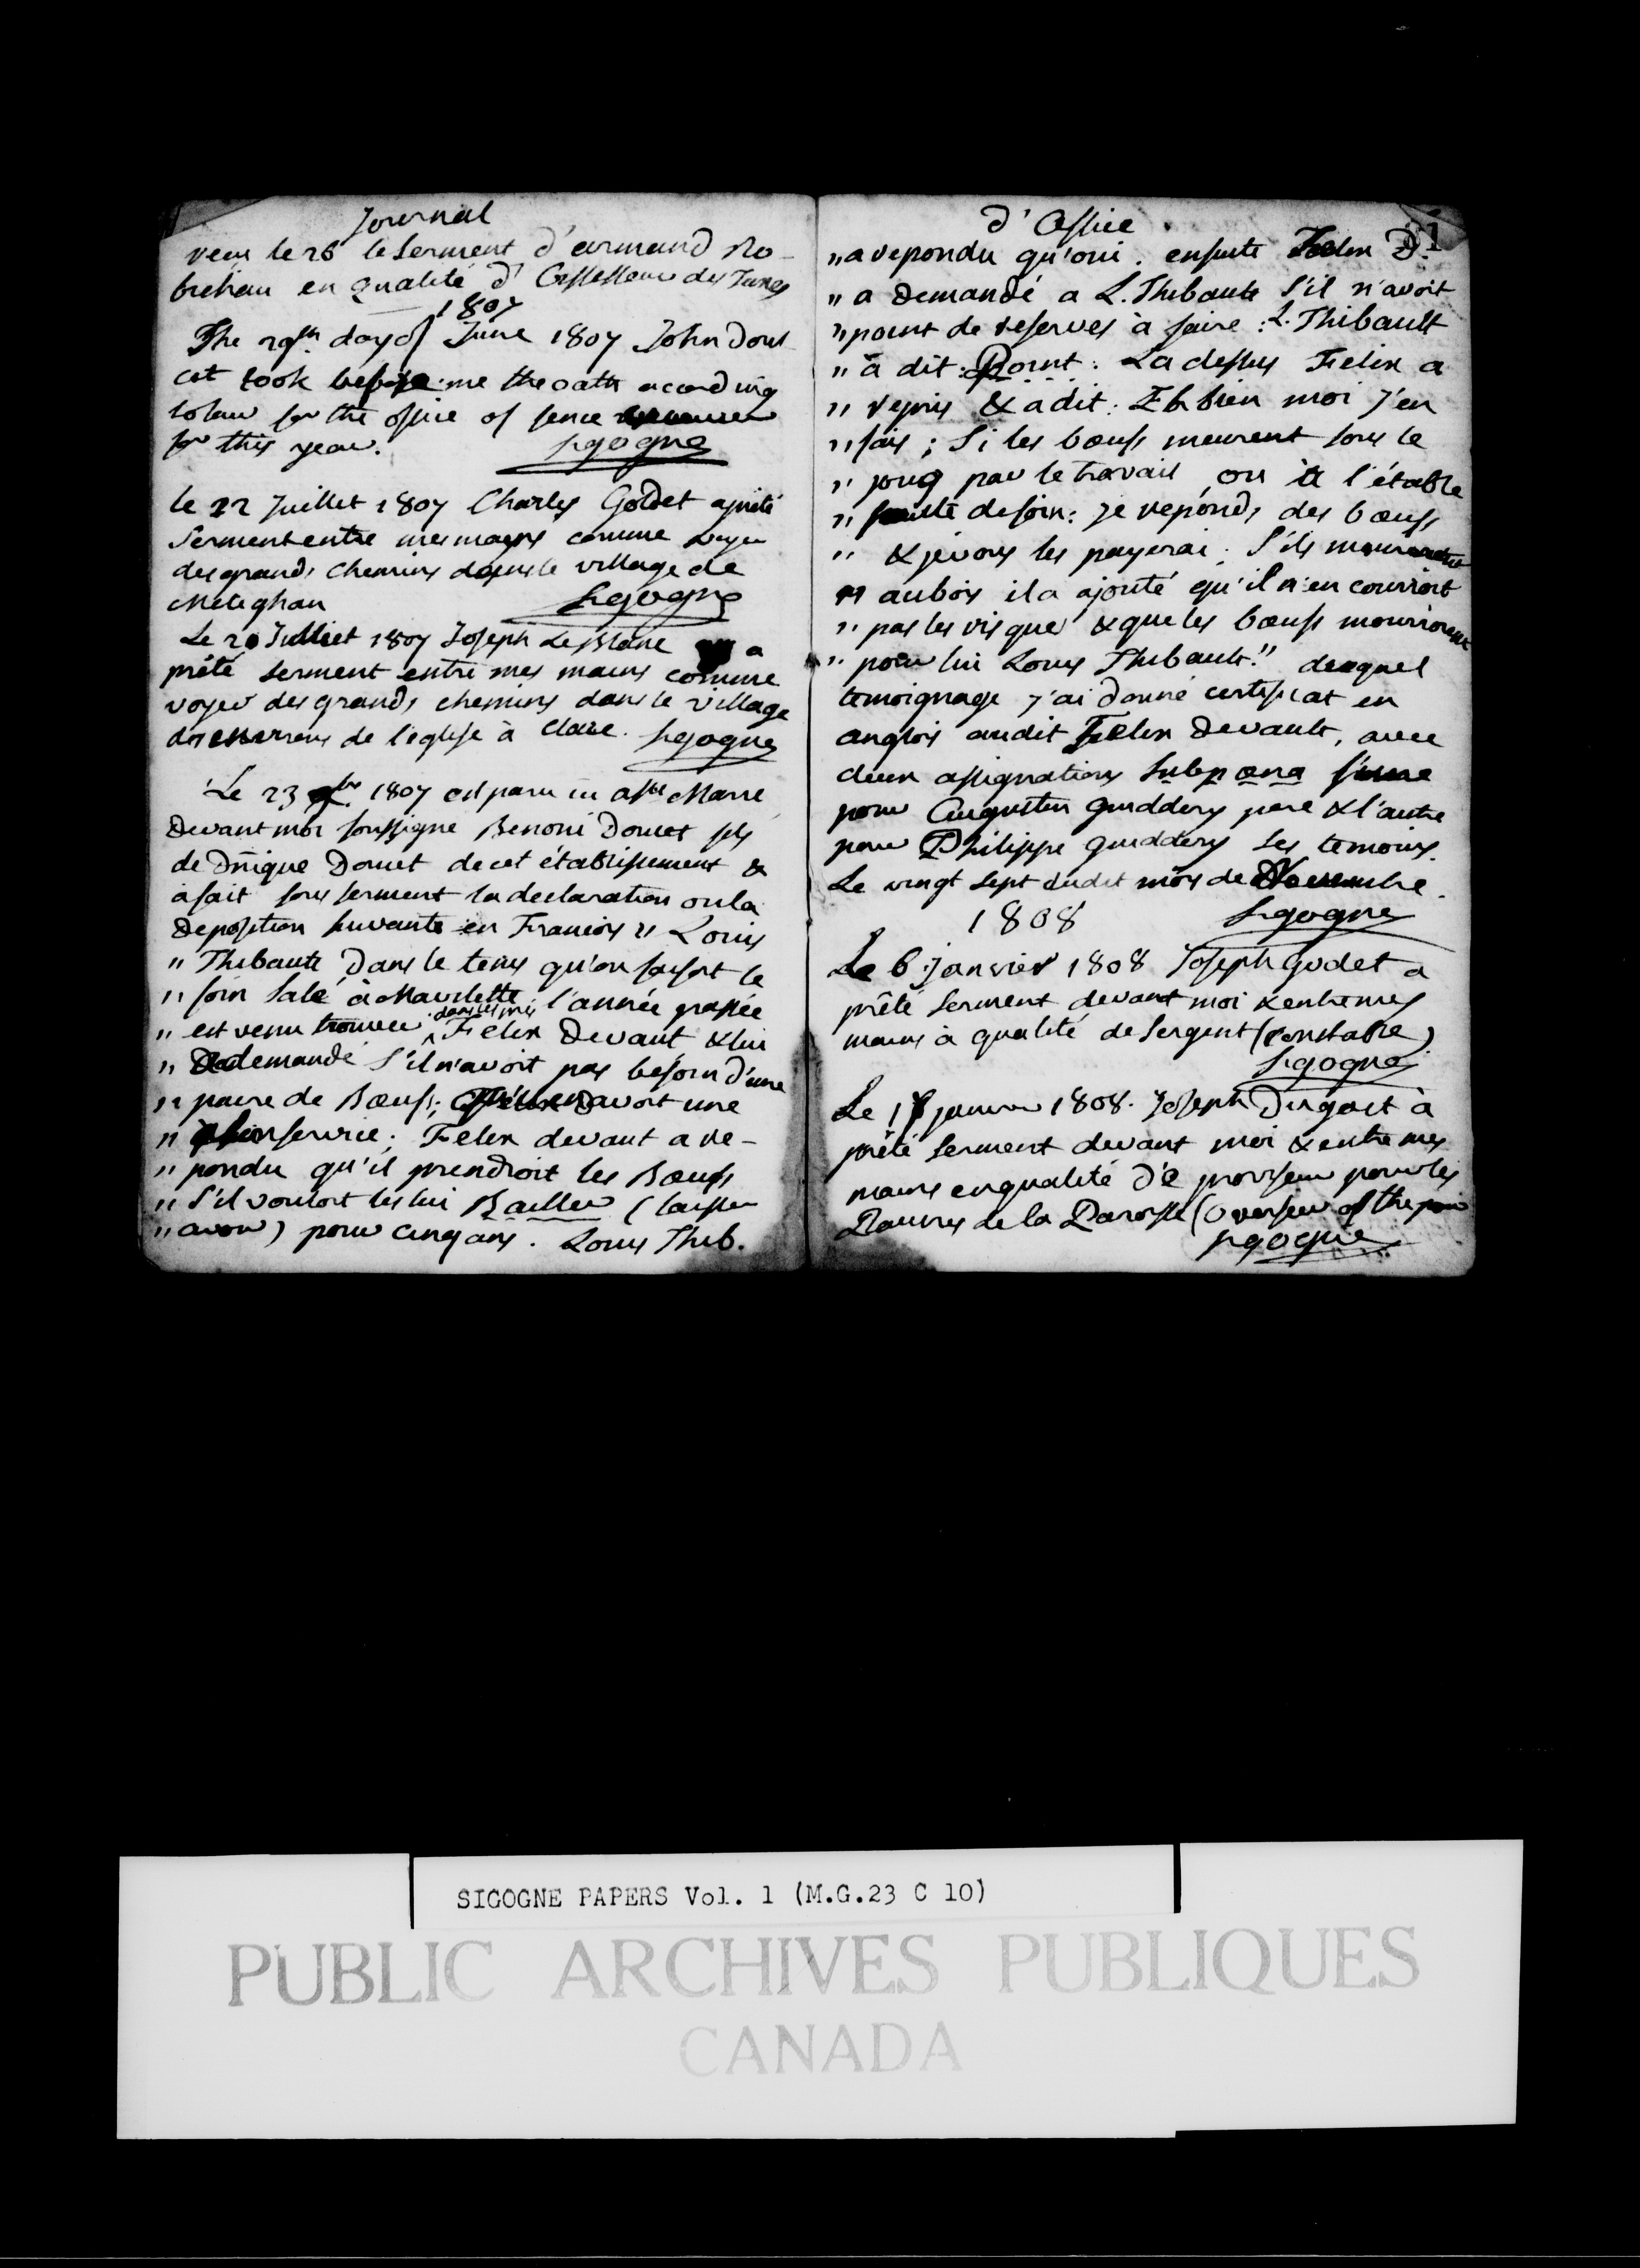 Journal
reçu le 26 le Serment d'armand Ro-
bichau en qualité d'Assesseur des Taxes
1807
The 29th. day of June 1807 John Dou
cet took before me the oath according
to law for the office of fence
for this year. Sigogne
le 22 Juillet 1807 Charles Godet a prêté
Serment entre mes mains comme voyer
des grands chemins depuis le village de
Meteghan Sigogne
Le 20 Julliet 1807 Joseph LeBlanc a
prêté serment entre mes mains comme
voyer des grands chemins dans le village
des environs de l'eglise à Clare. Sigogne
Le 23 1807 est paru in Ste Marie
Devant moi soussigné Benoni Doucet fils
de Dnique Doucet de cet établissement &
a fait sous serment la declaration ou la
Deposition suivante en Francois " Louis
" Thibaute Dans le tems qu'on faisoit le
" foin Salé à Mavilette, l'année passée
" est venu trouver dans les prés Felix Devant & lui
" demandé S'il n'avoit pas besoin d'une
" paire de Bœufs; avoit une
" service; Felix devant a re-
" pondu qu'il prendroit les Bœufs
" S'il vouloit les lui Bailler (laisser
" avoir) pour cinq ans. Louis Thib.
d'Office 
21
" a repondu qu'oui. ensuite Felix D.
" a Demandé a L. Thibaute S'il n'avoit
" point de reserves à faire: L. Thibault
" a dit: Point: La dessus Felix a
" repris & a dit: Eh bien moi j'en
" fais; Si les bœufs meurent sous le
" joug par le travail, ou à l'étable
" faute de soin: je reponds des bœufs
" & je vous les payerai. S'ils
" au bois il a ajouté qu'il n'en courroit
" pas les risques & que les bœufs mourroient
" pour lui Louis Thibault." duquel
temoignage j'ai donné certificat en
anglois audit Felix Devault, avec
deux assignations Subpœna l'une
pour Augustin Guiddery pere & l'autre
pour Philippe Guiddery ses temoins.
Le vingt Sept dudit mois de Novembre.
1808 Sigogne
Le 6 Janvier 1808 Joseph Godet a
prêté Serment devant moi & entre mes
mains à qualité de Sergent (constable)
Sigogne
Le janvier 1808. Joseph Dugast à
prêté Serment devant moi & entre mes
mains en qualité de proviseur pour les
Pauvres de la Paroisse (Overseer of the poor
Sigogne
SIGOGNE PAPERS Vol. 1 (M.G.23 C 10)
PUBLIC ARCHIVES PUBLIQUES
CANADA